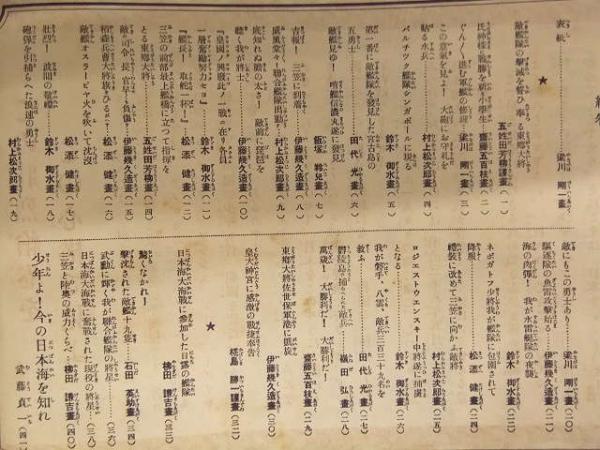 表紙 梁川剛一畫
★
敵艦隊の撃滅を誓ひ奉る東郷大將 五姓田芳柳謹畫 (一)
氏神樣に戰勝を祈る小學生 齋藤五百枝畫 (二)
ぐんぐん進む軍艦の修理 梁川剛一畫 (三)
この意氣を見よ! 大砲にお守札を
貼る水兵 村上松次郎畫 (四)
バルチック艦隊シンガポールに現る
鈴木御水畫 (五)
第一番に敵艦隊を發見した宮古島の
五勇士 田代光畫 (六)
敵艦見ゆ! 哨艦信濃丸遂に發見
飯塚羚兒畫 (七)
吉報! 三笠に到着 伊藤幾久造畫 (八)
威風堂々! 聯合艦隊出動 村上松次郎畫 (九)
底知れぬ膽の太さ! 敵前に琵琶を
聽く我が勇士 伊藤幾久造畫 (一〇)
『皇國ノ興廢此ノ一戰ニ在リ各員
一層奮勵努力セヨ』 鈴木御水畫 (一一)
『艦長! 取舵一杯!』 松添健畫 (一二)
三笠の前部最上艦橋に立つて指揮を
とる東郷大將 五姓田芳柳畫 (一四)
敵の司令長官早くも負傷 伊藤幾久造畫 (一五)
栢森兵曹大將旗をひるがへす 松添健畫 (一六)
敵艦オスラービヤ火を吹いて沈沒
松添健畫 (一七)
壯烈! 波間の敬禮 鈴木御水畫 (一八)
砲彈を引捕らへた浪速の勇士
村上松次郎畫 (一九)
敵にもこの勇士あり 梁川剛一畫 (二〇)
驅逐隊の魚雷攻撃始る 伊藤幾久造畫 (二一)
海の肉彈! 我が水雷艇隊の夜襲
鈴木御水畫 (二二)
ネボガトフ少將我が艦隊に包圍されて
降服 松添健畫 (二四)
禮裝に改めて三笠に向かふ敵將
村上松次郎畫 (二五)
ロジェストウェンスキー中將遂に捕虜
となる 鈴木御水畫 (二六)
我が磐手、八雲、敵兵三百三十九名を
救ふ 田代光畫 (二七)
鬱陵島の捕へられた敵兵 嶺田弘畫 (二八)
萬歳! 大勝利だ! 大勝利だ!
齋藤五百枝畫 (二九)
東郷大將佐世保軍港に凱旋
伊藤幾久造畫 (三〇)
皇大神宮に感激の戰捷奉告
椛島勝一謹畫 (三一)
★
日本海大海戰に參加した日露の艦隊
樺田謹吉畫 (三二)
驚くなかれ!
撃沈された敵艦十九隻 石田英助畫 (三四)
武勳に輝く我が聯合艦隊の將星 (三六)
日本海大海戰に奮戰された現役の將星 (三八)
三笠と陸奧の威力くらべ 樺田謹吉畫 (四〇)
少年よ! 今の日本海を知れ
武藤貞一 (四一)